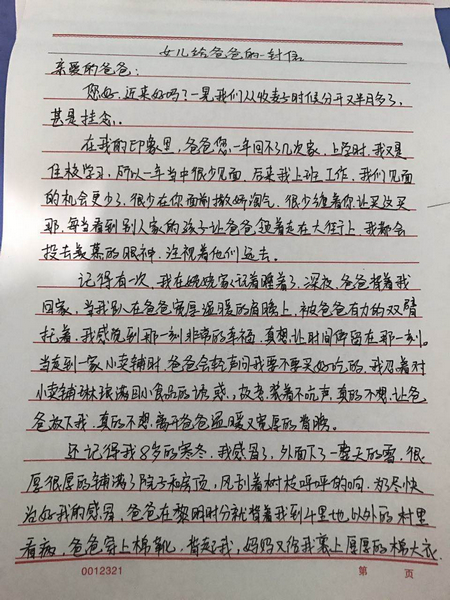 女儿给爸爸的一封信
亲爱的爸爸：
您好，近来好吗？一晃我们从收麦子时候分开又半月多了，
甚是挂念。
在我的印象里，爸爸您一年回不了几次家，上学时，我又是
住校学习，所以一年当中很少见面，后来我上班工作，我们见面
的机会更少了，很少在你面前撒娇淘气，很少缠着你让买这买
那，每当看到别人家的孩子让爸爸 着走在大街上，我都会
投去羡慕的眼神，注视着他们远去。
记得有一次，我在姥姥家 着睡着了，深夜，爸爸背着我
回家，当我趴在爸爸宽厚温暖的肩膀上，被爸爸有力的双臂
托着，我感觉到那一刻非常的幸福，真想让时间停留在那一刻。
当走到一家小卖铺时，爸爸会轻声问我要不要买好吃的，我忍着对
小卖铺琳琅满目小食品的诱惑，故意装着不吭声，真的不想让爸
爸放下我，真的不想离开爸爸温暖又宽厚的脊膀。
还记得我8岁的寒冬，我感冒了，外面下了一整天的雪，很
厚很厚的铺满了院子和房顶，风刮着树枝呼呼的响，为尽快
治好我的感冒，爸爸在黎明时分就背着我到4里地以外的村里
看病，爸爸穿上棉靴，背起我，妈妈又给我裹上厚厚的棉大衣，
0012321 第 页